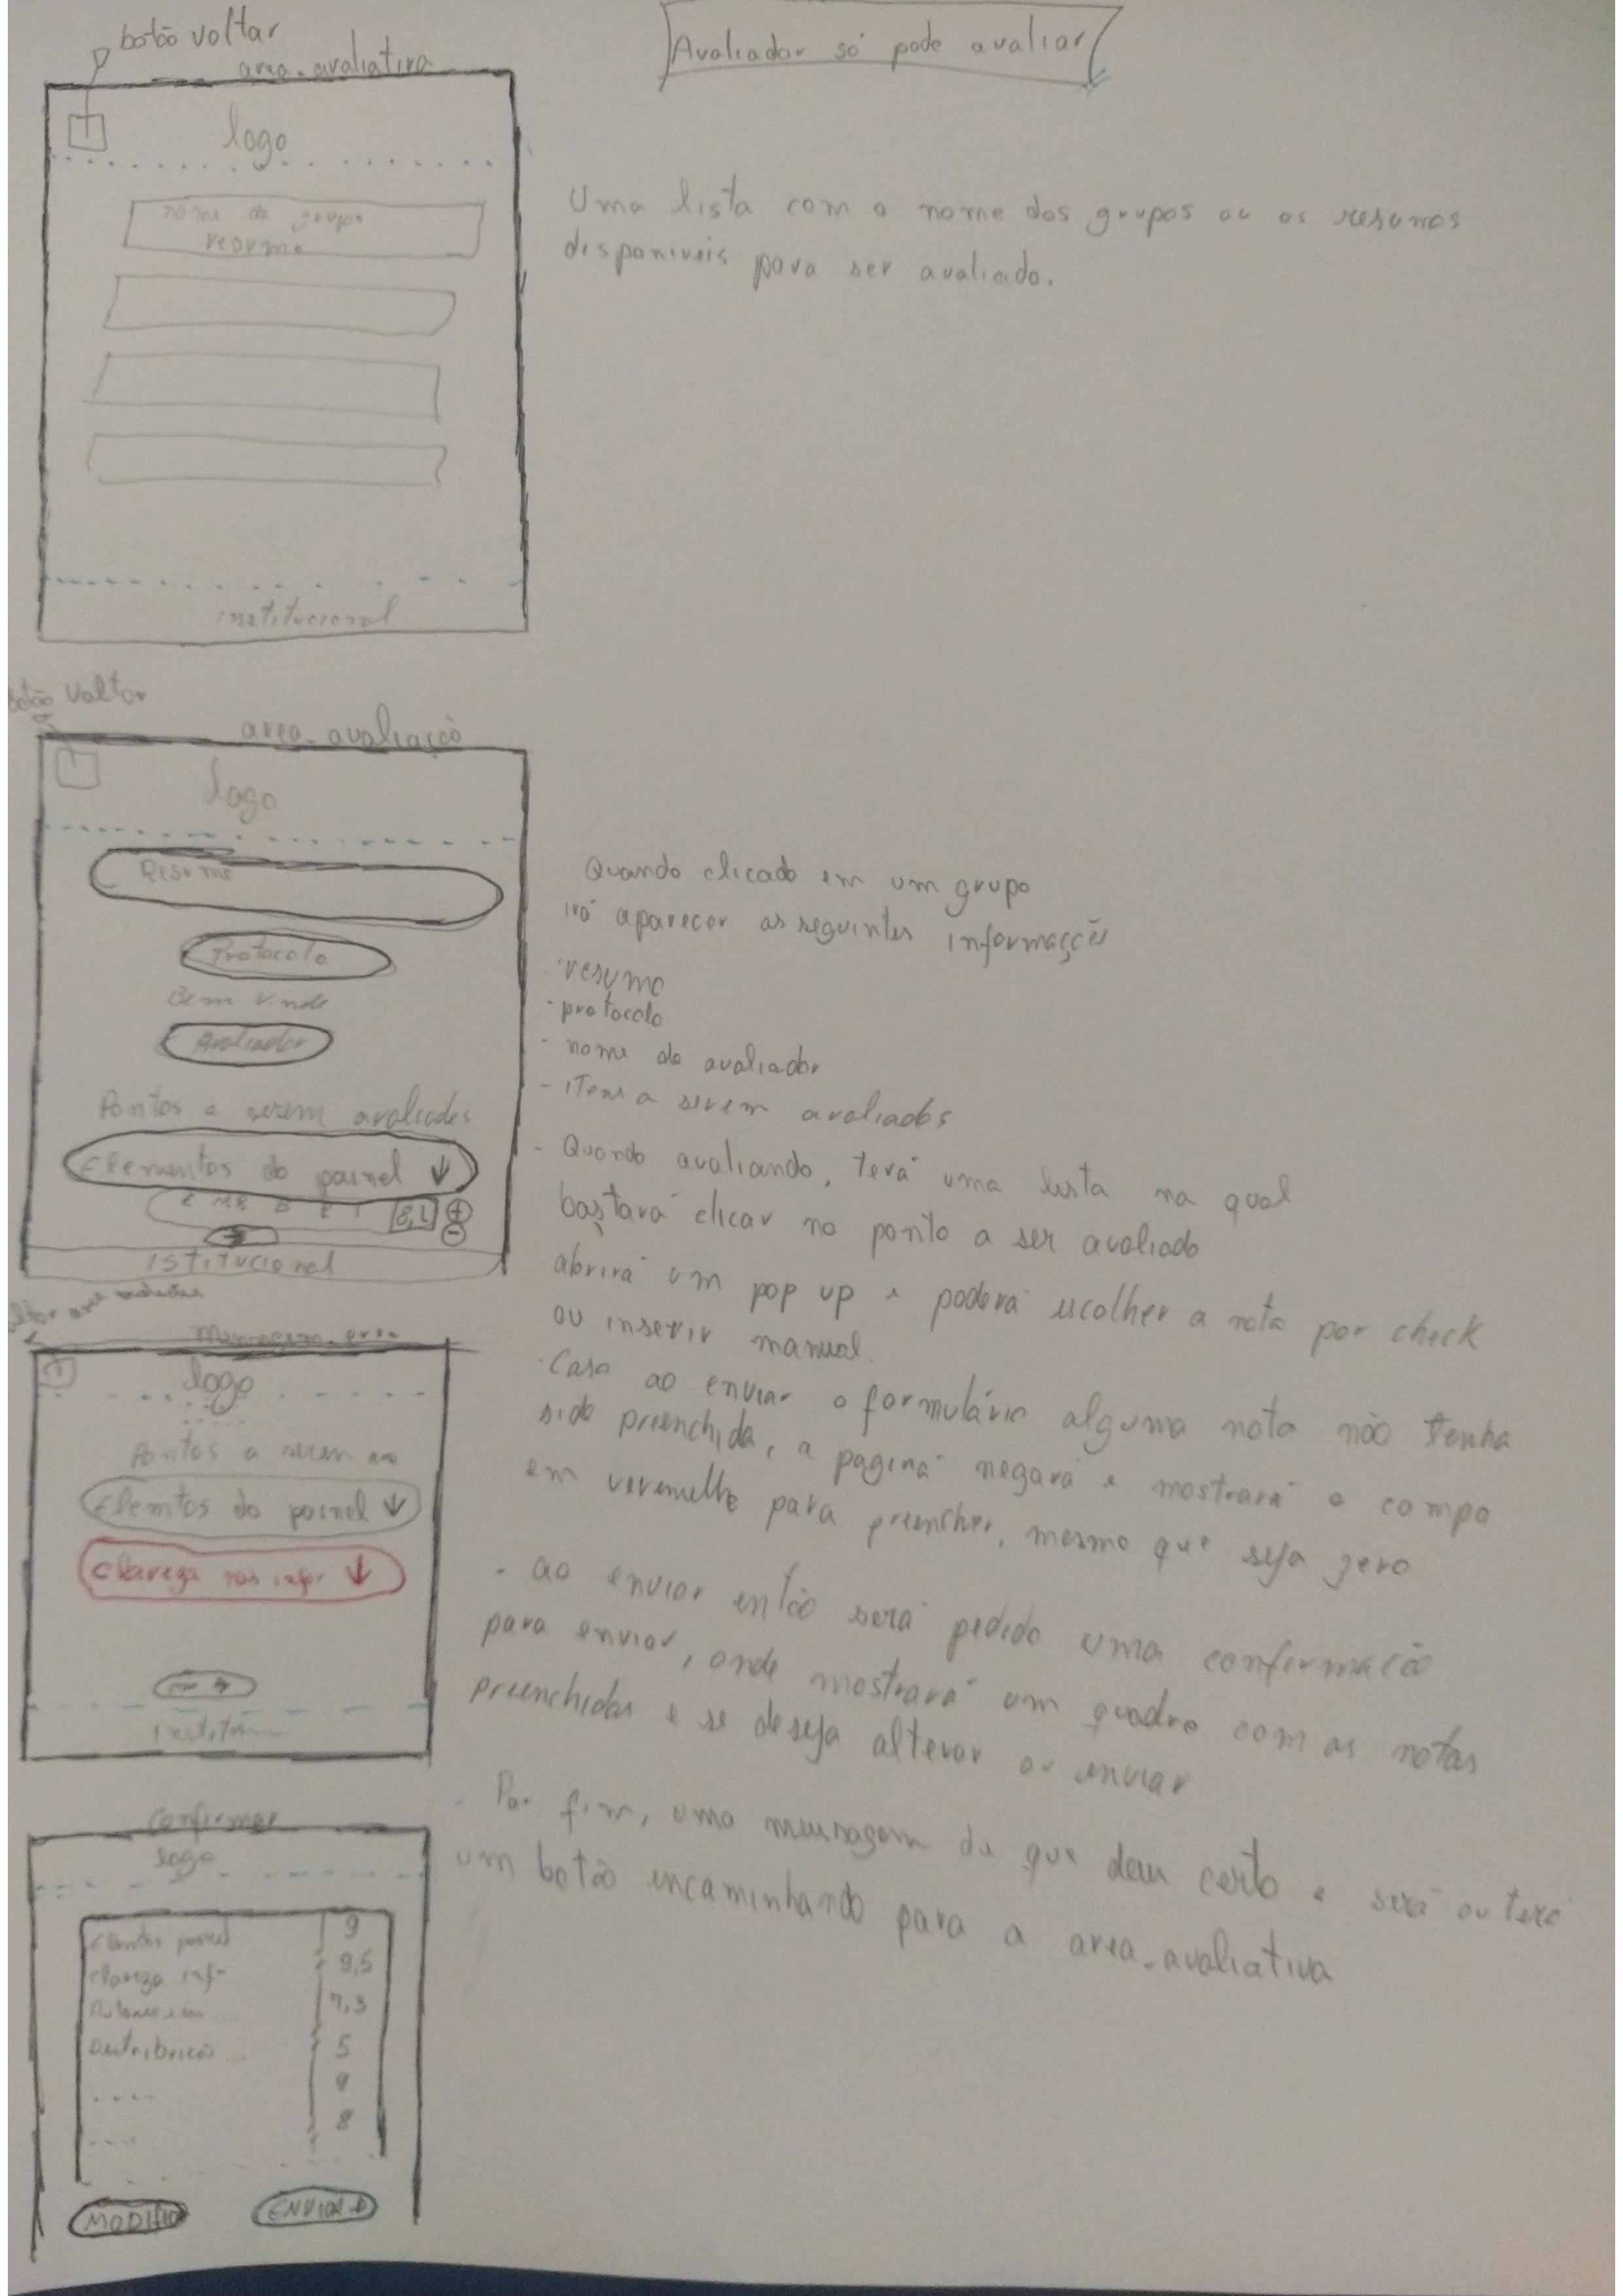 botão voltar
area-avaliativa
Avaliador só pode avaliar
logo
nome do grupo
resumo
Uma lista com o nome dos grupos ou os resumos
disponiveis para ser avaliado.
institucional
botão voltar
area-avaliação
logo
Resumo
Protocolo
Bem vindo
Avaliador
Pontos a serem avaliados
Elementos do painel ↓
E MB B R I 8,1 + -
Istitucional
Quando clicado em um grupo
irá aparecer as seguintes informações
· resumo
· protocolo
· nome do avaliador
- itens a serem avaliados
- Quando avaliando, terá uma lista na qual
bastará clicar no ponto a ser avaliado
abrirá um pop up e poderá escolher a nota por check
ou inserir manual.
· Caso ao enviar o formulário alguma nota não tenha
sido preenchida, a pagina negará e mostrará o campo
em vermelho para preencher, mesmo que seja zero
· ao enviar então será pedido uma confirmação
para enviar, onde mostrará um quadro com as notas
preenchidas e se deseja alterar ou enviar
- Por fim, uma mensagem de que deu certo e será ou terá
um botão encaminhando para a area-avaliativa
Mensagem-erro
logo
Pontos a serem
Elemtos do painel ↓
Clareza nas infor ↓
Confirmar
logo
painel 9
Clareza inf- 9,5
7,3
Distribuição ... 5
.... 9
.... 8
MODIFIC
ENVIAR